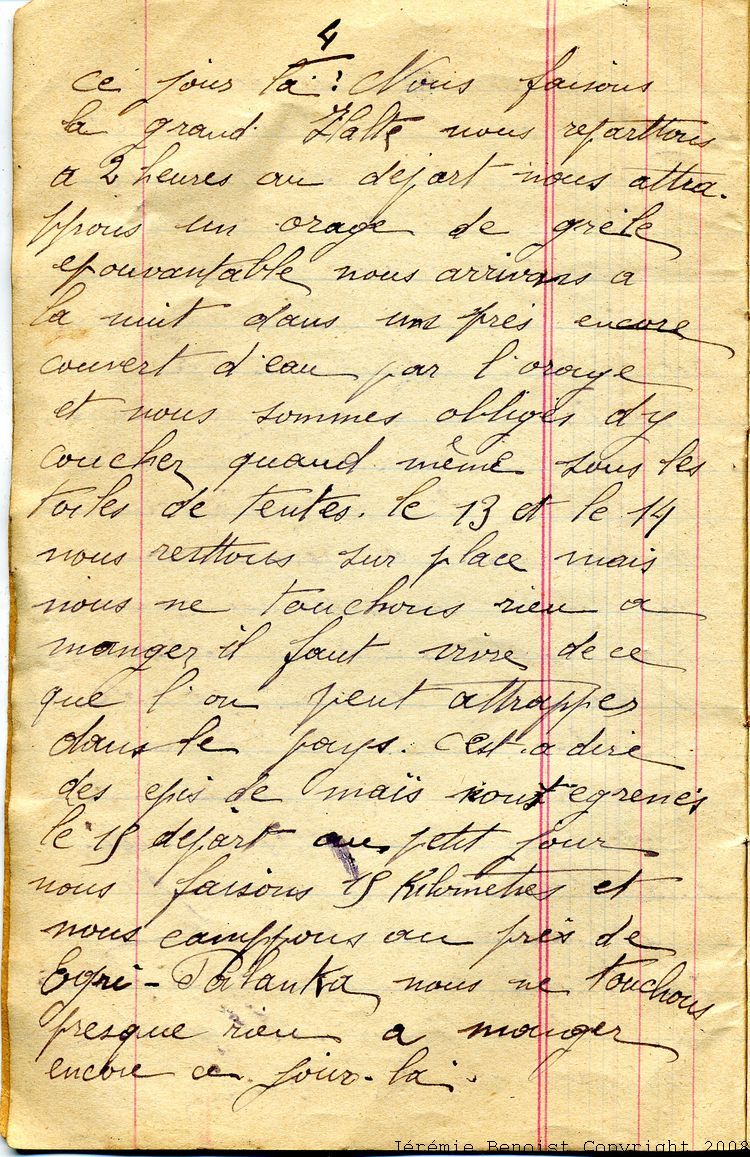 4
ce jour là : Nous faisons
la grand Halte nous reparttons
a 2 heures au depart nous attra-
ppons un orage de grêle
epouvantable nous arrivons a
la nuit dans uns près encore
couvert d'eau par l'orage
et nous sommes obligés d'y
coucher quand même sous les
toiles de tentes. le 13 et le 14
nous resttons sur place mais
nous ne touchons rien a
manger il faut vivre de ce
que l'on peut attrapper
dans le pays. c'est. a dire
des epis de maïs egrenés
le 15 départ au petit jour
nous faisons 15 Kilomètres et
nous camppons au près de
Egri-Palanka nous ne touchons
presque rien a manger
encore ce jour-là.
Jérémie Benoist Copyright 2008